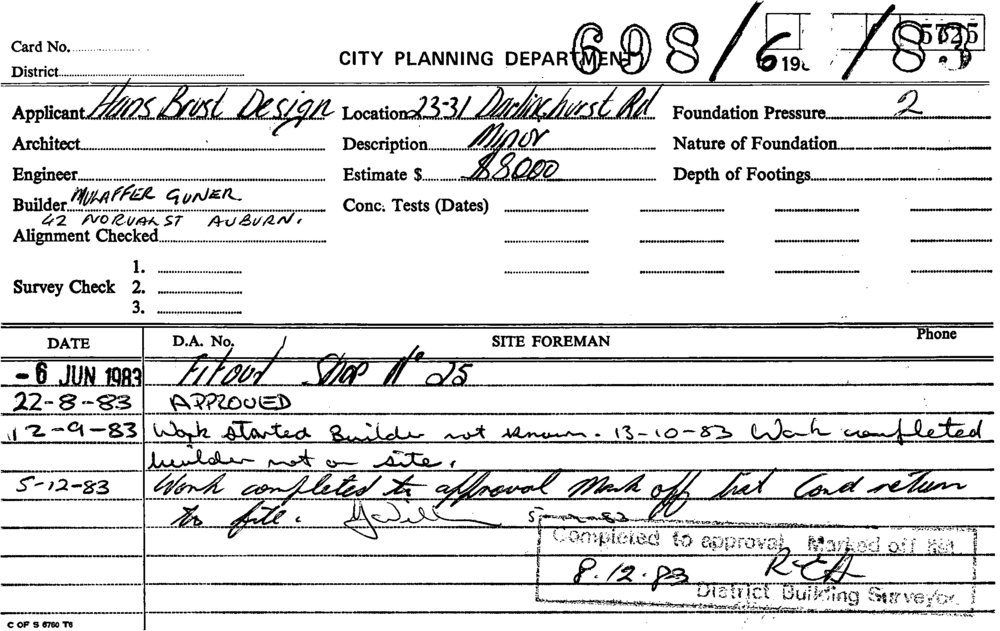 Card No.
CITY PLANNING DEPARTMENT 608/6 198 /83 5725
District
Applicant Hans Brust Design Location 23-31 Darlinghurst Rd Foundation Pressure 2
Architect Description Minor Nature of Foundation
Engineer Estimate $ $8000 Depth of Footings
Builder GUNER Conc. Tests (Dates)
42 NORVAL ST AUBURN.
Alignment Checked
1.
Survey Check 2.
3.
DATE D.A. No. SITE FOREMAN Phone
- 6 JUN 1983 Fitout Shop No 25
22-8-83 APPROVED
12-9-83 Work started Builder not known. 13-10-83 Work completed
builder not on site.
5-12-83 Work completed to approval Mark off list Card return
to file. 5-12-83
Completed to approval Marked off list
8.12.83
District Building Surveyor.
C OF S 6760 T6